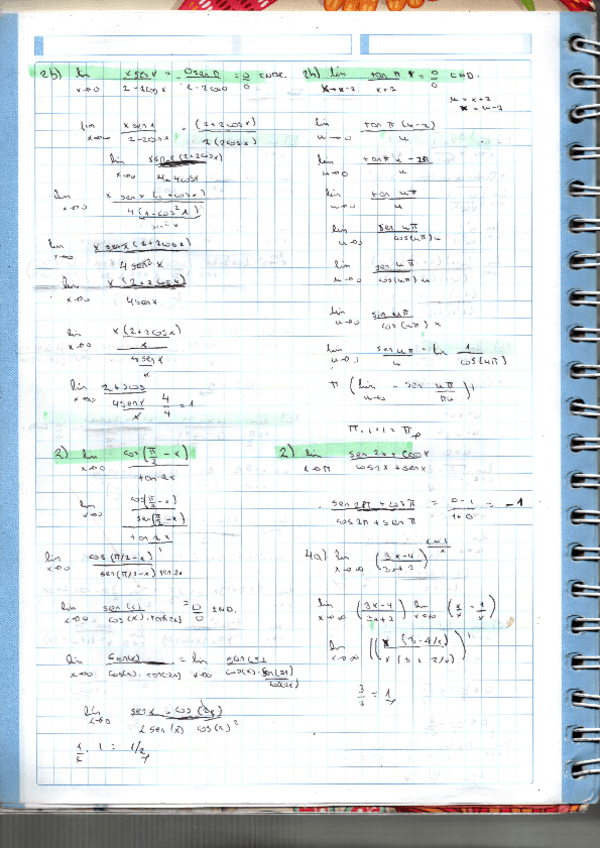 2b) lim x→0 x sen x / 2-2cos x = 0 sen 0 / 2-2cos 0 = 0/0 IND.
lim x→0 x sen x / 2-2cos x · (2+2cos x) / 2(2cos x)
lim x→0 x sen x (2+2cos x) / 4-4cos x
4(1-cos² x)
lim x→0 x sen x (2+2cos x) / 4 sen² x
lim x→0 x (2+2cos x) / 4 sen x
lim x→0 x(2+2cos x) / x / 4 sen x / x
lim x→0 2+2cos / 4 sen x / x 4/4 = 1
2h) lim x→-2 tan π x / x+2 = 0/0 IND.
u = x+2
x = u-2
lim u→0 tan π (u-2) / u
lim u→0 tan π u - 2π / u
lim u→0 tan uπ / u
lim u→0 sen uπ / cos(uπ) u
lim u→0 sen uπ / cos(uπ) u
lim u→0 sin uπ / cos(uπ) u
lim u→0 sen uπ / u · lim 1 / cos(uπ)
π ( lim u→0 - sen uπ / πu ) 1
π · 1 · 1 = π
2) lim x→0 cos(π/2 - x) / tan 2x
lim x→0 cos(π/2 - x) / sen(π/2 - x) / tan 2x
lim x→0 cos(π/2 - x) / sen(π/2 - x) tan 2x
lim x→0 sen(x) / cos(x) · tan(2x) = 0/0 IND.
lim x→0 sen(x) / cos(x) · tan(2x) = lim x→0 sen(x) / cos(x) · sen(2x) / cos(2x)
lim x→0 sen x · cos(2x) / 2 sen(x) cos(x)²
1/2 · 1 = 1/2
2) lim x→π sen 2x + cos x / cos 2x + sen x
sen 2π + cos π / cos 2π + sen π = 0-1 / 1+0 = -1
4a) lim x→∞ (3x-4 / 3x+2)
lim x→∞ (3x-4 / 3x+2) lim x→∞ (x/x - 1/x)
lim x→∞ ((x (3-4/x) / x (3+2/x))) 1
3/3 = 1